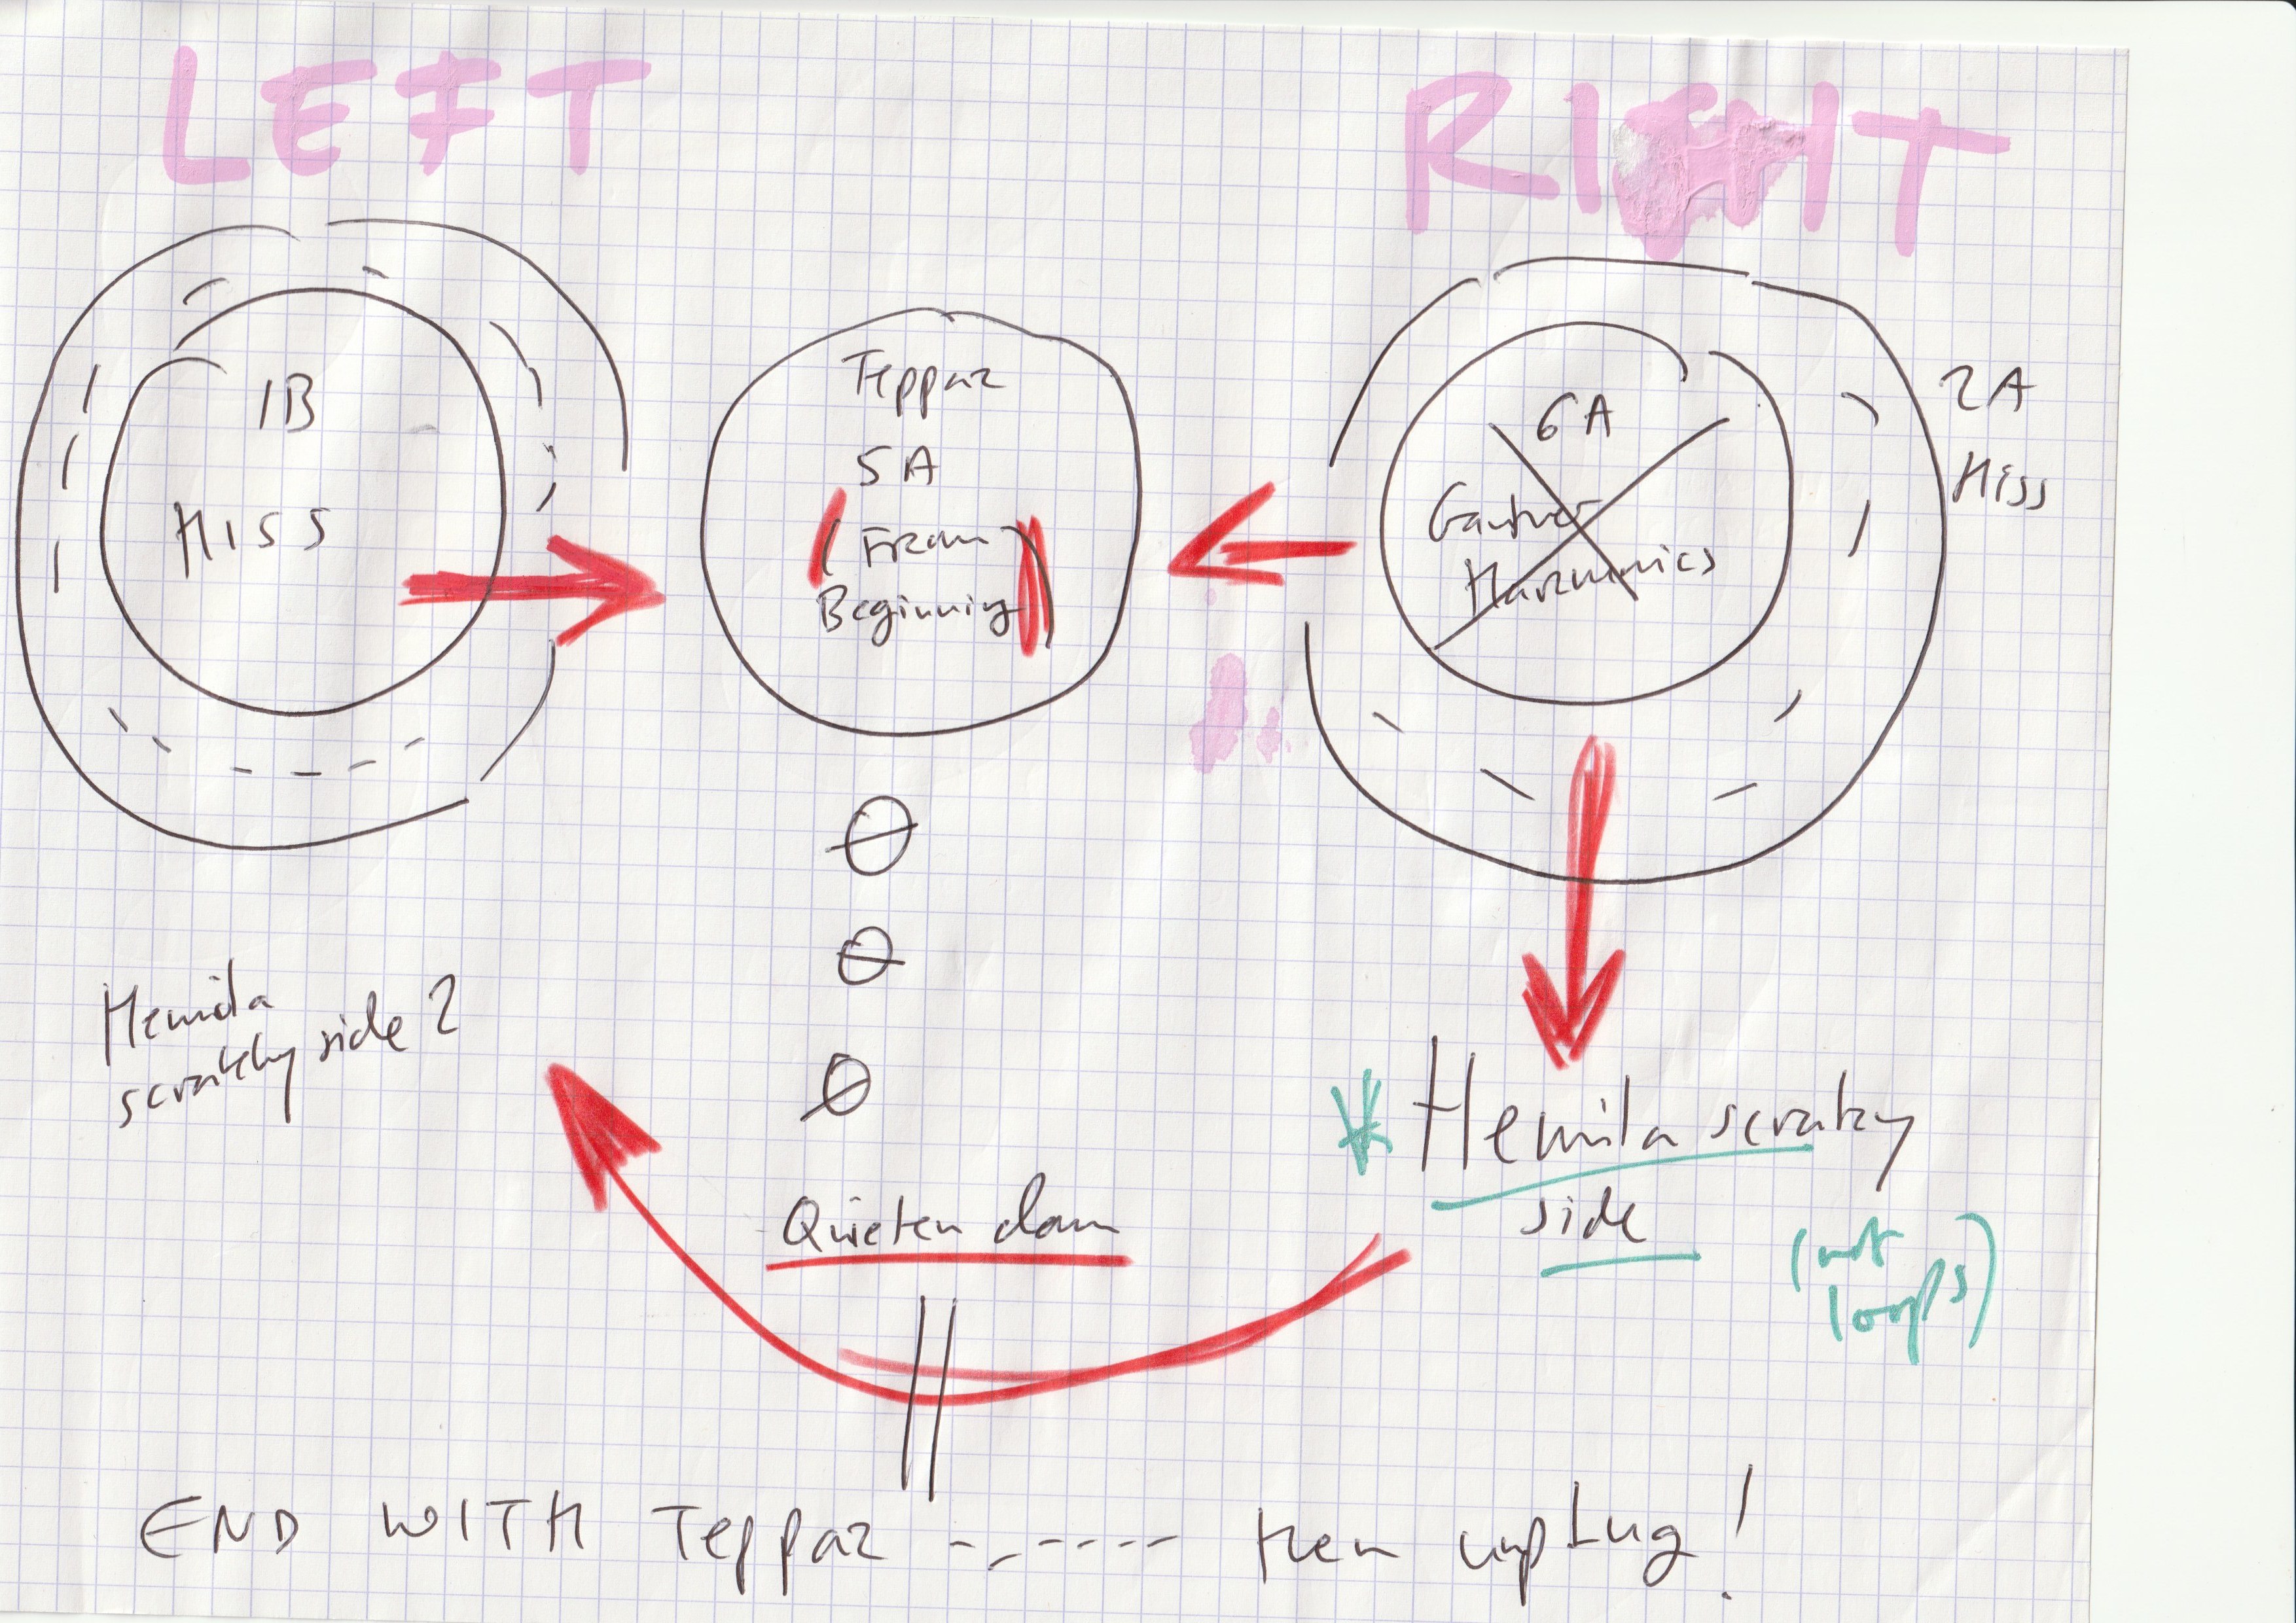 LEFT
RIGHT
1B
HISS
Teppaz
5A
(From
Beginning)
6A
Harmonics
2A
Hiss
side 2
Quieten down
scratchy
side
(not
loops)
END WITH Teppaz ------- then unplug!